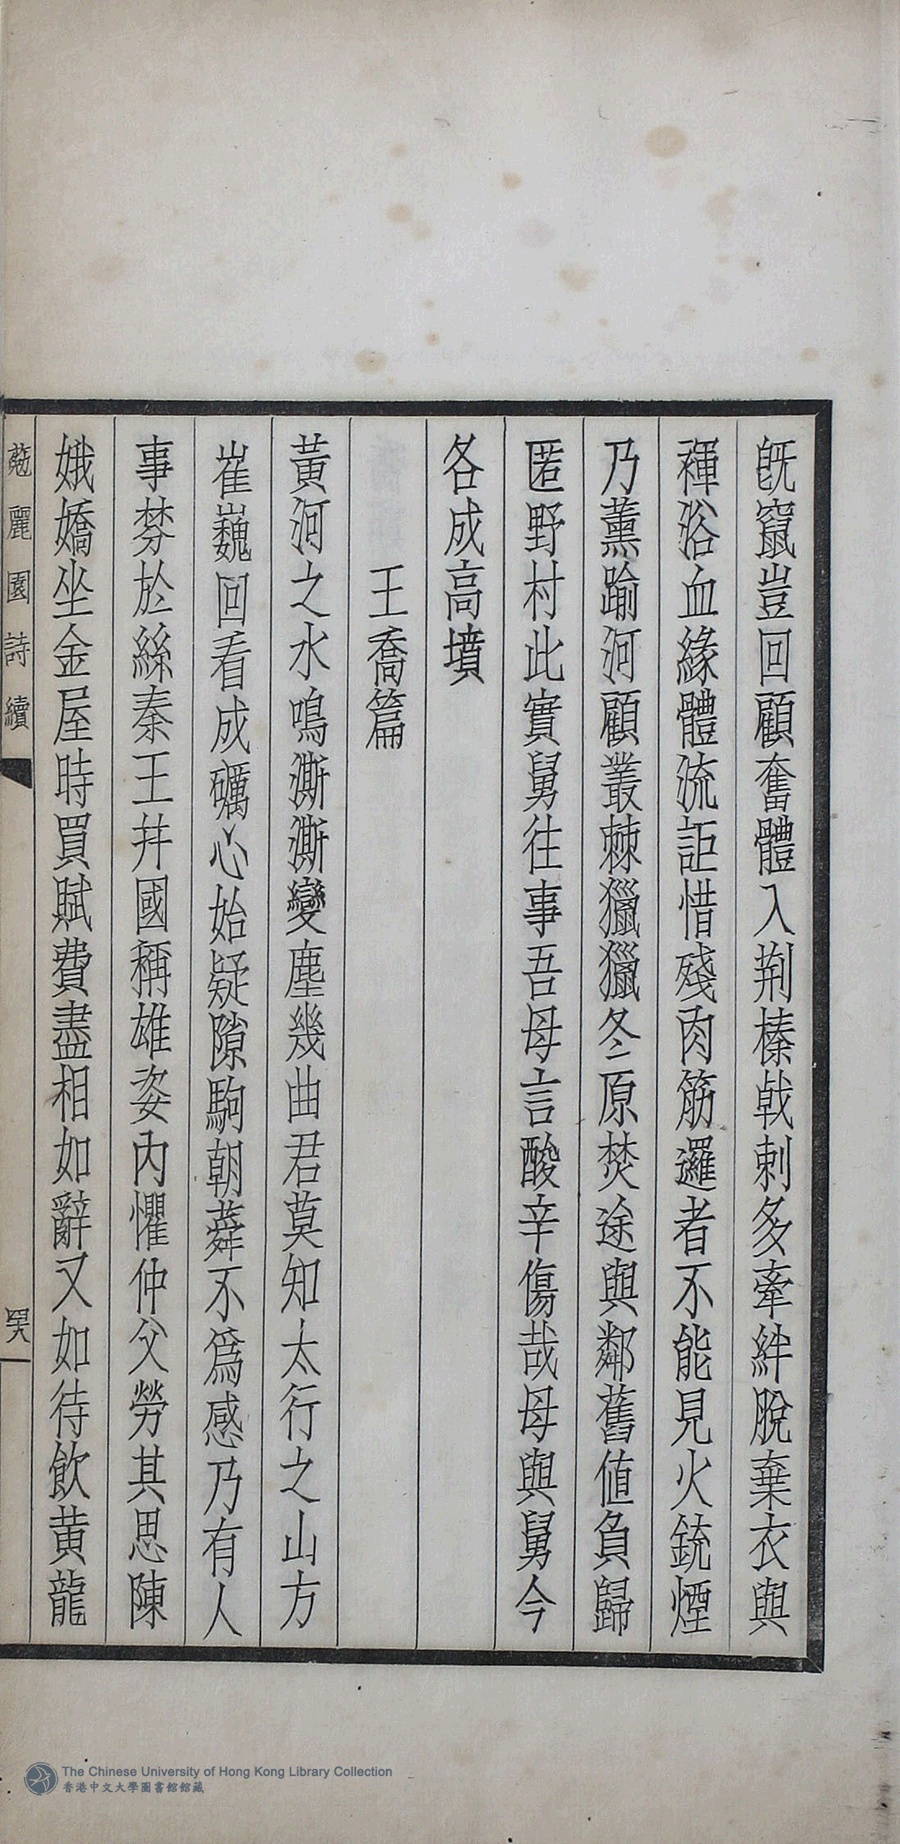 既竄豈回顧奮體入荆榛戟刺多牽絆脫棄衣與
褌浴血緣體流詎惜殘肉筋邏者不能見火銃煙
乃薰踰河顧叢棘獵獵冬原焚途與鄰舊値負歸
匿野村此實舅往事吾母言酸辛傷哉母與舅今
各成高墳
王喬篇
黃河之水鳴澌澌變塵幾曲君莫知太行之山方
崔巍回看成礪心始疑隙駒朝蕣不爲感乃有人
事棼於絲秦王幷國稱雄姿內懼仲父勞其思陳
娥嬌坐金屋時買賦費盡相如辭又如待飲黄龍
麗園詩續
The Chinese University of Hong Kong Library Collection
香港中文大學圖書館館藏